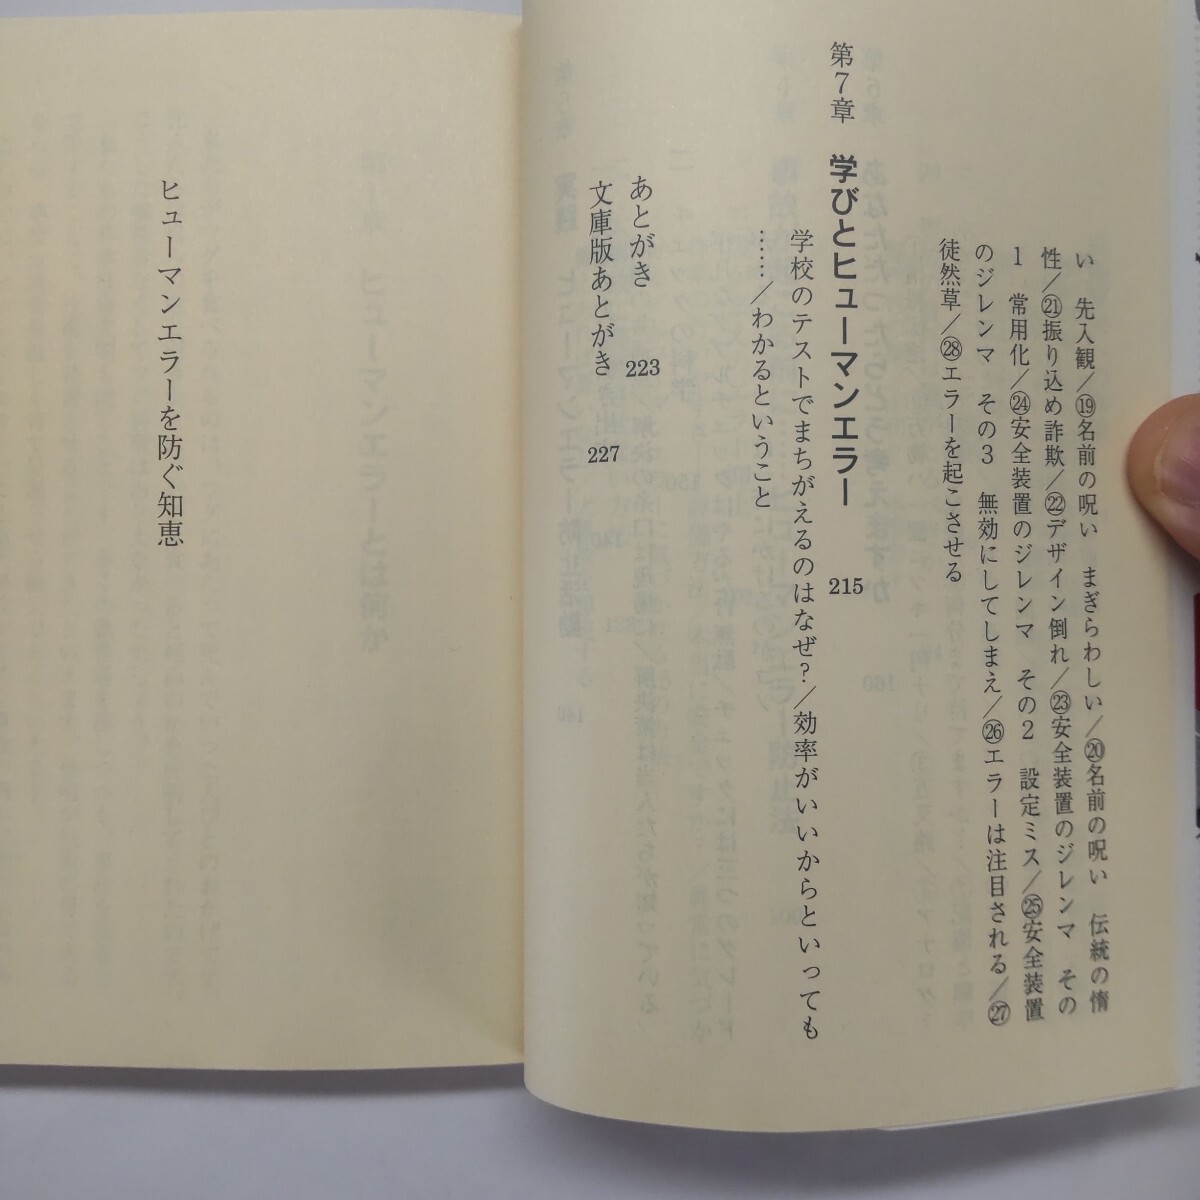 い　先入観/⑲名前の呪い　まぎらわしい/⑳名前の呪い　伝統の惰
性/㉑振り込め詐欺/㉒デザイン倒れ/㉓安全装置のジレンマ　その
1　常用化/㉔安全装置のジレンマ　その2　設定ミス/㉕安全装置
のジレンマ　その3　無効にしてしまえ/㉖エラーは注目される/㉗
徒然草/㉘エラーを起こさせる
第7章　学びとヒューマンエラー　215
学校のテストでまちがえるのはなぜ?/効率がいいからといっても
……/わかるということ
あとがき　223
文庫版あとがき　227
ヒューマンエラーを防ぐ知恵